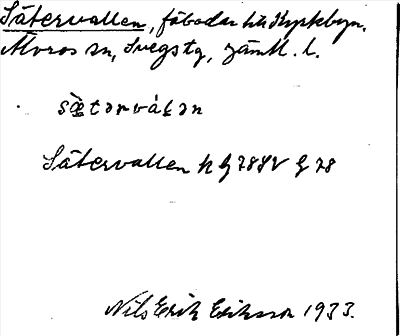 Sätervallen, fäbodar till Kyrkbyn,
Älvros sn, Svegs tg, Jämtl. l.
sæ̀tərváłən
Sätervallen h g 78 SV g 78
Nils Erik Eriksson 1933.